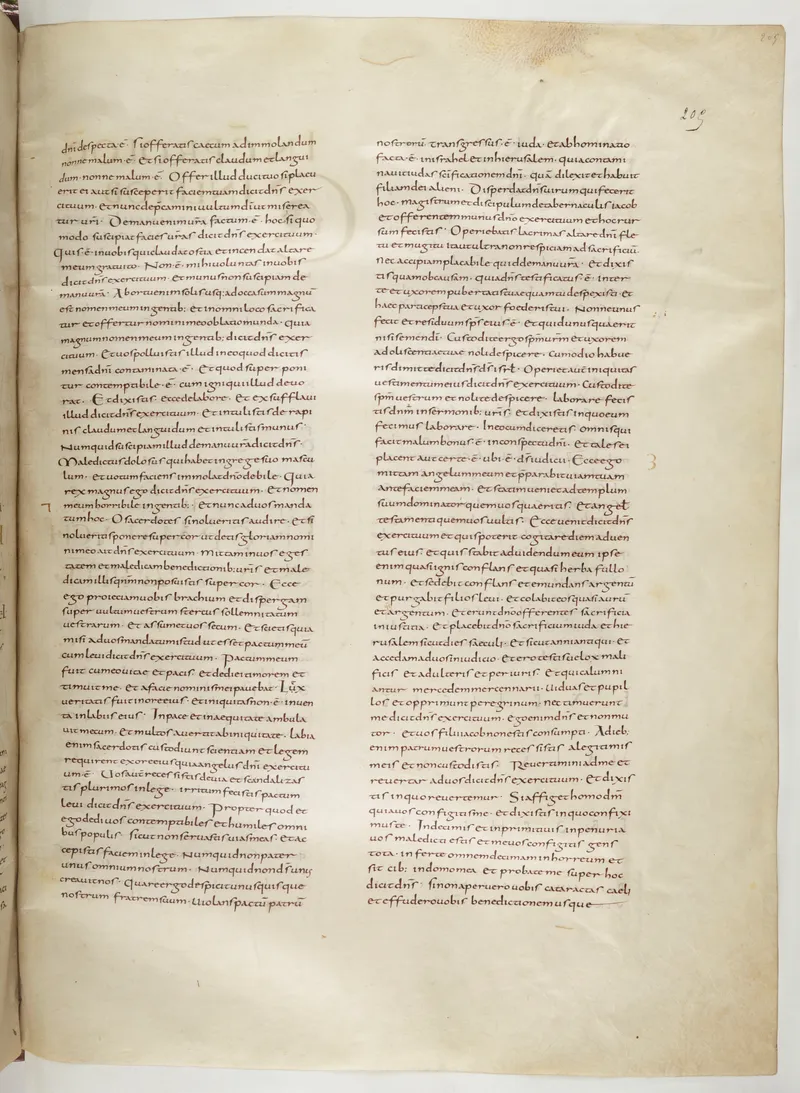 205
dni despecta ē. Si offeratis caecum ad immolandum
nonne malum ē. Et si offeratis claudum et langui
dum. nonne malum ē. Offer illud duci tuo si placu
erit ei aut si susceperit faciem tuam dicit dns exer
cituum. et nunc deprecamini uultum di ut misere
tur uri. De manu enim ura factum ē. hoc si quo
modo suscipiat facies uras dicit dns exercituum.
Quis ē. in uobis qui claudat ostia et incendat altare
meum gratuito. Non ē. mihi uoluntas in uobis
dicit dns exercituum. et munus non suscipiam de
manu ura. Ab ortu enim solis usq; ad occasum magnū
est nomen meum in gentib; et in omni loco sacrifica
tur et offertur nomini meo oblatio munda. quia
magnum nomen meum in gentib; dicit dns exer
cituum. Et uos polluistis illud in eo quod dicitis
mensa dni contaminata ē. Et quod super poni
tur contemptabile ē. cum igni qui illud deuo
rat. Et dixistis ecce de labore. et exsufflastis
illud dicit dns exercituum. Et intulistis de rapi
nis claudum et languidum et intulistis munus.
Numquid suscipiam illud de manu ura dicit dns.
Maledictus dolosus qui habet in grege suo mascu
lum. et uotum faciens immolat dno debile. Quia
rex magnus ego dicit dns exercituum. Et nomen
meum horribile in gentib; et nunc ad uos manda
tum hoc. O sacerdotes si nolueritis audire. et si
nolueritis ponere super cor ut detis gloriam nomi
ni meo ait dns exercituum. Mittam in uos eges
tatem et maledicam benedictionib; uris et male
dicam illis qnm non posuistis super cor. Ecce
ego proiciam uobis brachium et dispergam
super uultum uestrum stercus sollemnitatum
uestrarum. et assumet uos secum. Et scietis quia
misi ad uos mandatum istud ut esset pactum meū
cum leui dicit dns exercituum. Pactum meum
fuit cum eo uitae et pacis. et dedi ei timorem et
timuit me. et a facie nominis mei pauebat. Lex
ueritatis fuit in ore eius. et iniquitas non ē. inuen
ta in labiis eius. In pace et in aequitate ambula
uit mecum. et multos auertit ab iniquitate. Labia
enim sacerdotis custodiunt scientiam et legem
requirent ex ore eius quia angelus dni exercitu
um ē. Uos autē recessistis de uia et scandalizas
tis plurimos in lege. irritum fecistis pactum
leui dicit dns exercituum. Propter quod et
ego dedi uos contemptabiles et humiles omni
bus populis. sicut non seruastis uias meas. et ac
cepistis faciem in lege. Numquid non pater
unus omnium nostrum. Numquid non ds unus
creauit nos. Quare ergo despicit unusquisque
nostrum fratrem suum. Uiolans pactū patrū
nostrorū. transgressus ē. iuda. et abhominatio
facta ē. in israhel et in hierusalem. quia contami
nauit iudas scificationem dni. quā dilexit et habuit
filiam dei alieni. Disperdat dns uirum qui fecerit
hoc. magistrum et discipulum de tabernaculis iacob
et offerentem munus dno exercituum et hoc rur
sum fecistis. Operiebatis lacrimas altare dni fle
tu et mugitu ita ut ultra non respiciam ad sacrificiū.
nec accipiam placabile quid de manu ura. Et dixis
tis quam ob causam. quia dns testificatus ē. inter
te et uxorem pubertatis tuae quam tu despexisti. et
haec particeps tua et uxor foederis tui. Nonne unus
fecit et residuum sps eius ē. et quid unus quaerit
nisi semen di. Custodite ergo spm urm et uxorem
adolescentiae tuae noli despicere. Cum odio habue
ris dimitte dicit dns ds isrl. Operiet autē iniquitas
uestimentum eius dicit dns exercituum. Custodite
spm uestrum et nolite despicere. laborare fecis
tis dnm in sermonib; uris. et dixistis in quo eum
fecimus laborare. In eo cum diceretis. omnis qui
facit malum bonus ē. in conspectu dni. et tales ei
placent aut certe ē. ubi ē. ds iudicii. Ecce ego
mittam angelum meum et pparabit uiam tuam
ante faciem meam. Et statim ueniet ad templum
suum dominator quem uos quaeritis. et angel
testamenti quem uos uultis. Ecce uenit dicit dns
exercituum et quis poterit cogitare diem aduen
tus eius. et quis stabit ad uidendum eum ipse
enim quasi ignis conflans et quasi herba fullo
num. et sedebit conflans et emundans argentū
et purgabit filios leui. et colabit eos quasi aurū
et argentum. et erunt dno offerentes sacrificia
in iustitia. Et placebit dno sacrificium iuda et hie
rusalem sicut dies saeculi. et sicut anni antiqui. et
accedam ad uos in iudicio. et ero testis uelox mali
ficis et adulteris et periuris. et qui calumni
antur mercedem mercennarii. uiduas et pupil
los et opprimunt peregrinum. nec timuerunt
me dicit dns exercituum. ego enim dns et non mu
tor. et uos filii iacob non estis consumpti. A dieb;
enim patrum uestrorum recessistis. A legitimis
meis et non custodistis. Reuertimini ad me et
reuertar ad uos dicit dns exercituum. Et dixis
tis in quo reuertemur. Si affiget homo dm
quia uos configitis me. et dixistis in quo confixi
mus te. In decimis et in primitiuis in penuria
uos maledicti estis et me uos configitis gens
tota. inferte omnem decimam in horreum et
sit cib; in domo mea. et probate me super hoc
dicit dns. si non aperuero uobis cataractas caeli
et effudero uobis benedictionem usque